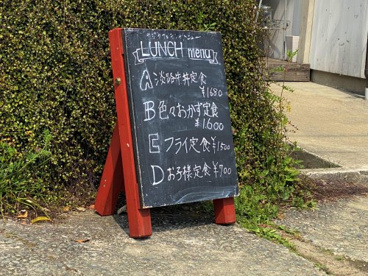 LUNCH menu
A 淡路牛丼定食
¥1680
B 色々おかず定食
¥1600
E フライ定食 ¥1500
D お子様定食 ¥700